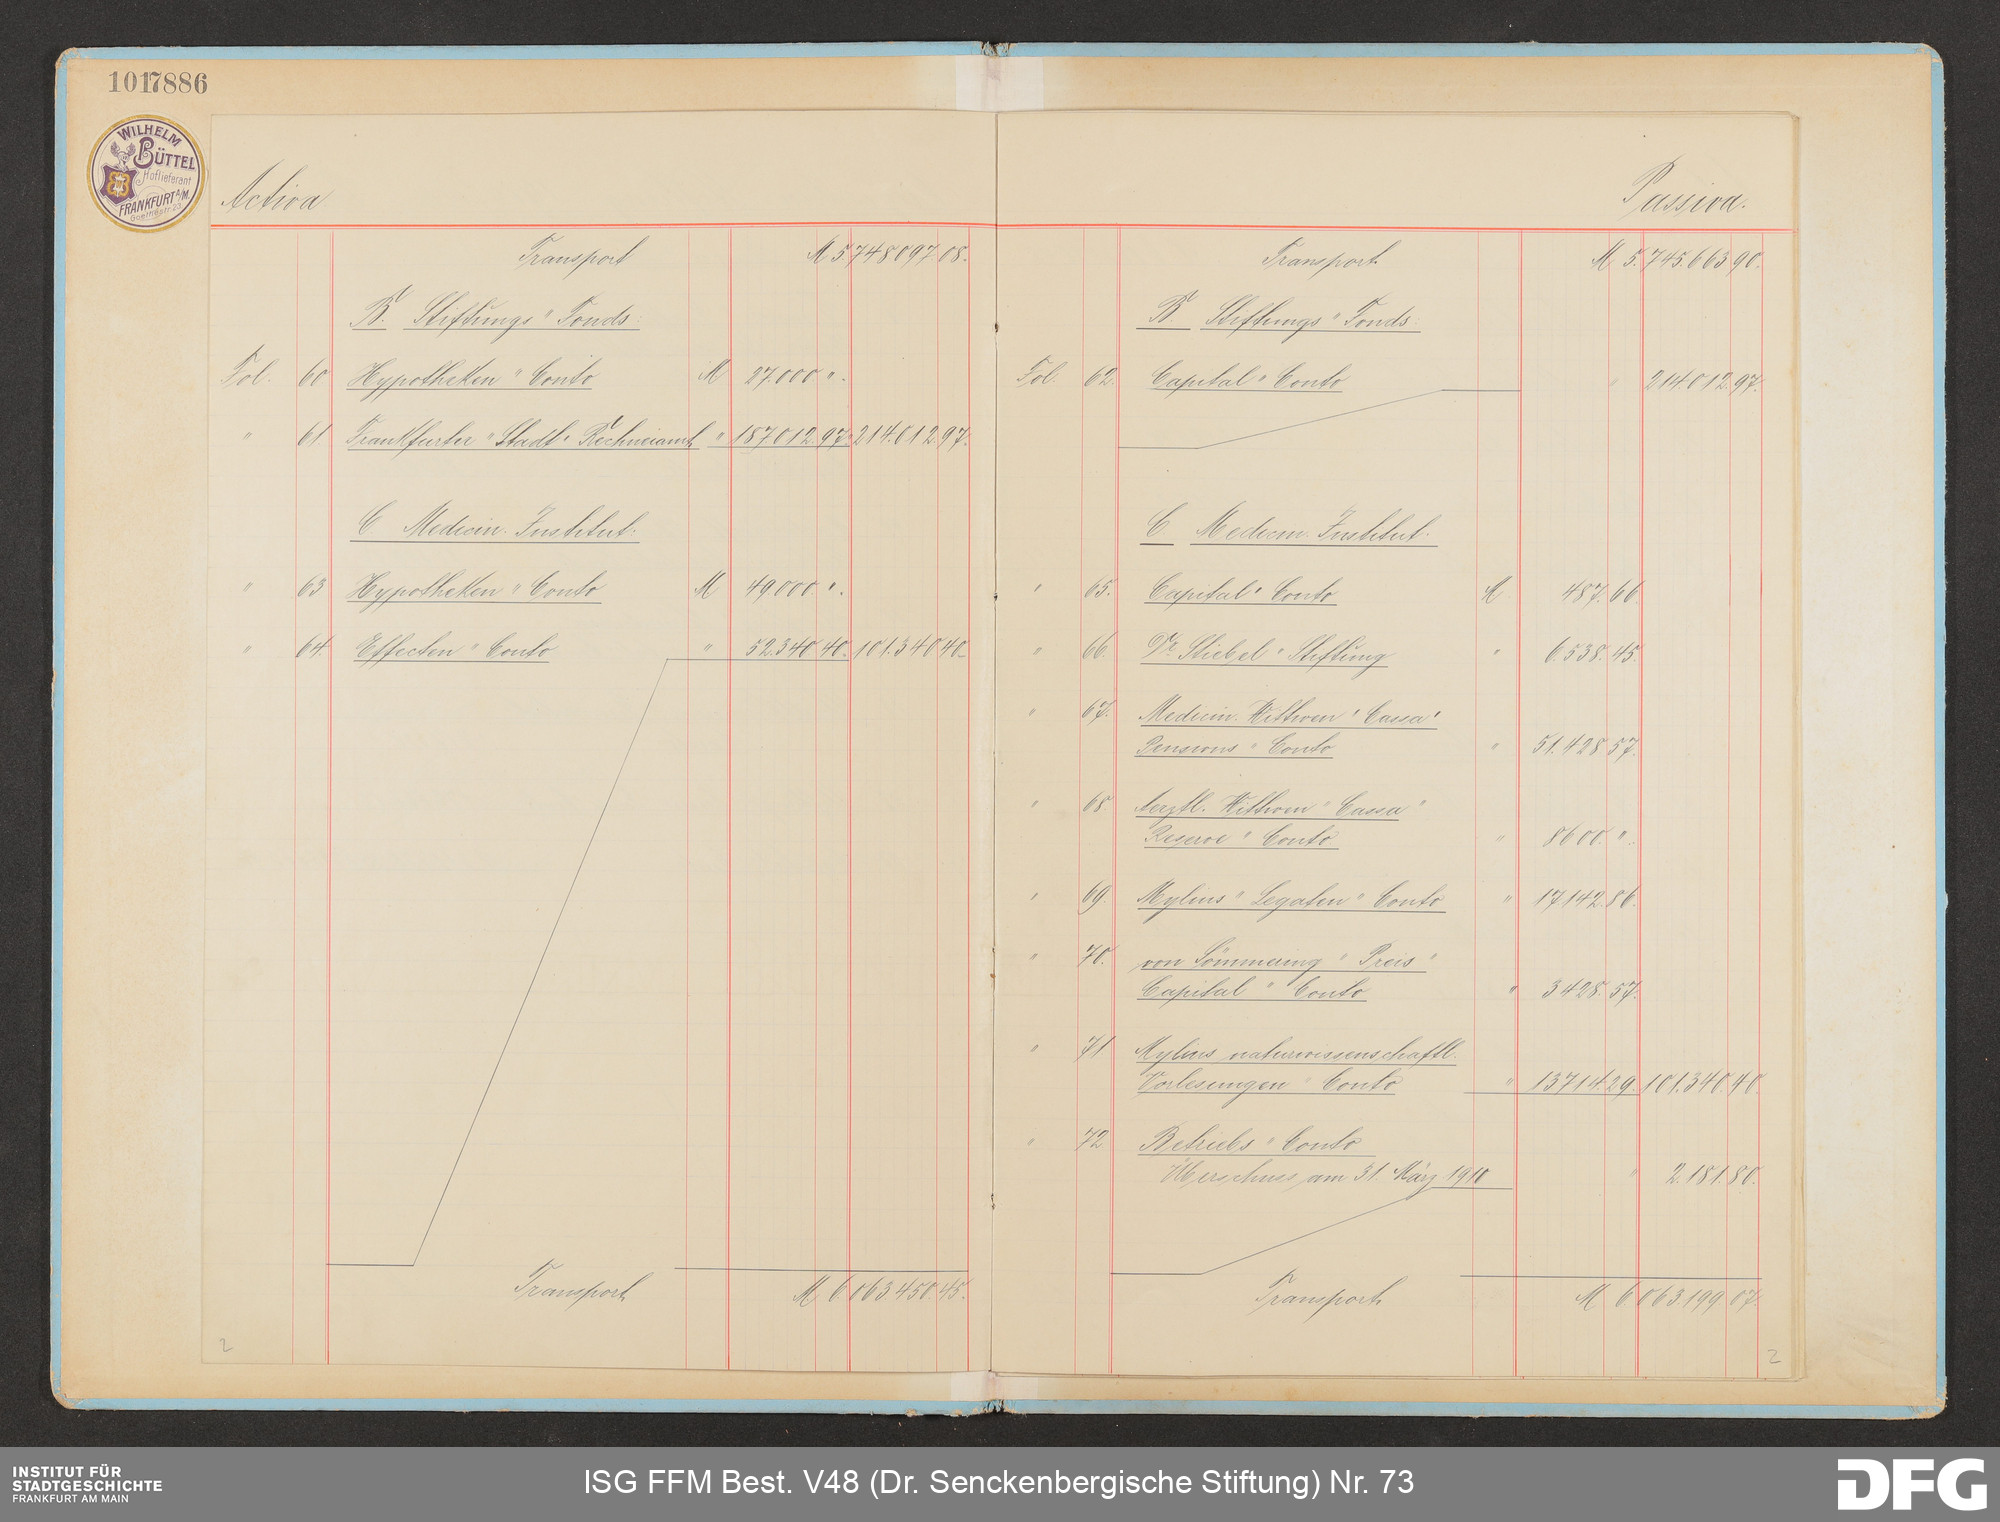 1017886
WILHELM
BÜTTEL
Hoflieferant
FRANKFURT A/M.
Goethestr. 23
Activa
Transport M 5.748097.08.
B. Stiftungs " Fonds.
Fol. 60 Hypotheken " Conto M 27.000 ".
" 61 Frankfurter " Stadt " Rechneiamt " 187012.97. 214.012.97.
C Medicin. Institut.
" 63 Hypotheken " Conto M 49000. ".
" 64. Effecten " Conto " 52.340.40. 101.340.40.
Transport M 6.063450.45.
2
Passiva.
Transport. M 5.745.663.90.
B. Stiftungs " Fonds.
Fol. 62. Capital " Conto " 214.012.97.
C Medicin. Institut.
" 65. Capital " Conto M 487.66.
" 66. Dr. Stiebel " Stiftung " 6.538.45.
" 67. Medicin. Wittwen " Cassa "
Pensions " Conto " 51.428.57.
" 68 Aerztl. Wittwen " Cassa "
Reserve " Conto " 8600. ".
" 69. Mylius " Legaten " Conto " 17.142.86.
" 70. von Sömmering " Preis "
Capital " Conto " 3428.57.
" 71 Mylius naturwissenschaftl.
Vorlesungen " Conto " 13714.29. 101.340.40.
" 72 Betriebs " Conto
Überschuss am 31. März 1910 " 2.181.80.
Transport. M 6.063.199.07.
2
INSTITUT FÜR
STADTGESCHICHTE
FRANKFURT AM MAIN
ISG FFM Best. V48 (Dr. Senckenbergische Stiftung) Nr. 73
DFG